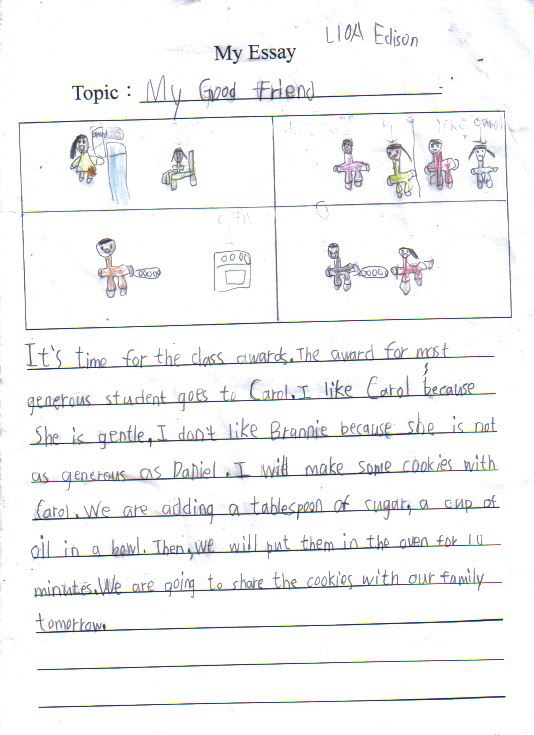 L10A Edison
My Essay
Topic : My Good Friend
It's time for the class awards. The award for most
generous student goes to Carol. I like Carol because
she is gentle. I don't like Brannie because she is not
as generous as Daniel. I will make some cookies with
Carol. We are adding a tablespoon of sugar, a cup of
oil in a bowl. Then, we will put them in the oven for 10
minutes. We are going to share the cookies with our family
tomorrow.